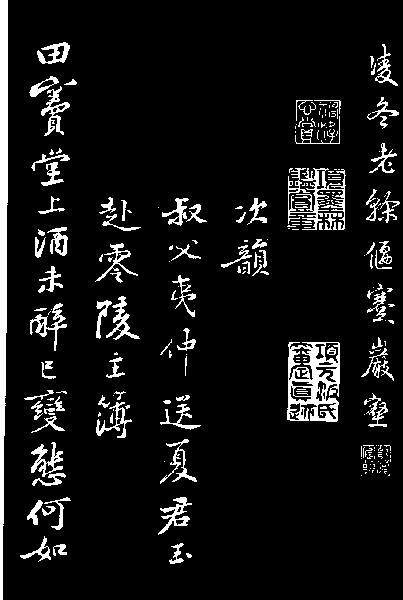 淩冬老榦偃蹇巖壑
項墨林鑑賞章
項元汴氏審定真跡
次韻
叔父夷仲送夏君玉
赴零陵主簿
田竇堂上酒未醉已變態何如